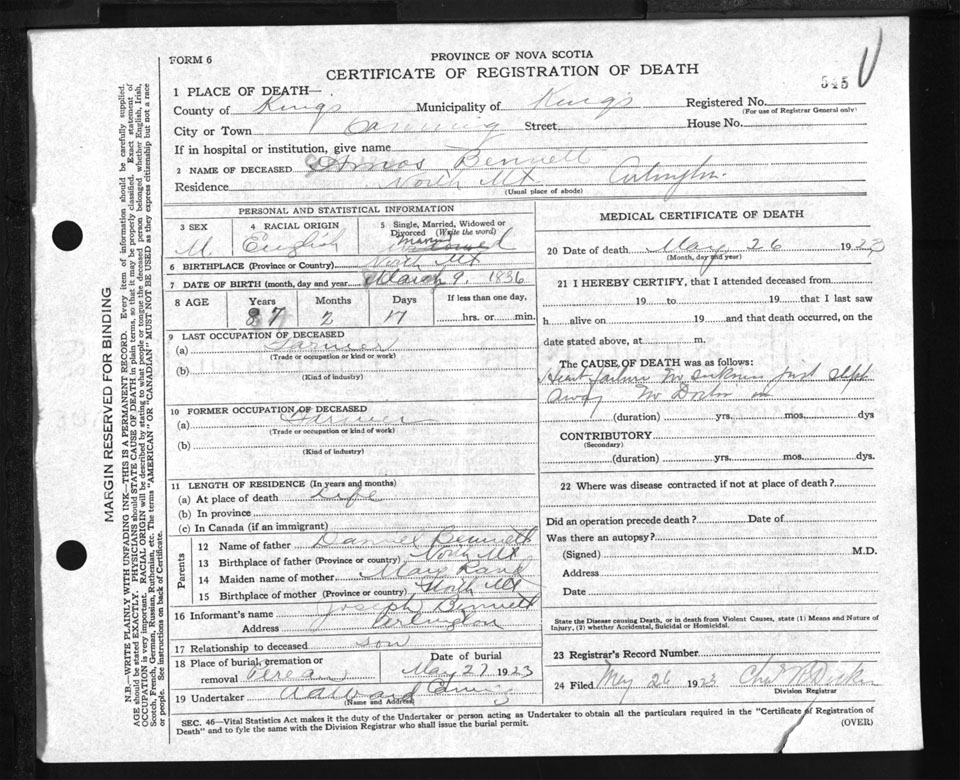 FORM 6
PROVINCE OF NOVA SCOTIA
CERTIFICATE OF REGISTRATION OF DEATH
545
1 PLACE OF DEATH—
County of Kings Municipality of Kings Registered No.
(For use of Registrar General only)
City or Town Canning Street House No.
If in hospital or institution, give name
2 NAME OF DECEASED Amos Bennett
Residence North Mt Arlington
(Usual place of abode)
PERSONAL AND STATISTICAL INFORMATION
3 SEX 4 RACIAL ORIGIN 5 Single, Married, Widowed or Divorced (Write the word)
M. English
6 BIRTHPLACE (Province or Country) North Mt
7 DATE OF BIRTH (month, day and year) March 9. 1836
8 AGE Years Months Days If less than one day,
87 2 17 hrs. or min.
9 LAST OCCUPATION OF DECEASED
(a) Farmer
(Trade or occupation or kind of work)
(b)
(Kind of industry)
10 FORMER OCCUPATION OF DECEASED
(a) Farmer
(Trade or occupation or kind of work)
(b)
(Kind of industry)
11 LENGTH OF RESIDENCE (In years and months)
(a) At place of death Life
(b) In province
(c) In Canada (if an immigrant)
Parents
12 Name of father Daniel Bennett
13 Birthplace of father (Province or country) North Mt
14 Maiden name of mother Mary Rand
15 Birthplace of mother (Province or country) North Mt
16 Informant's name Joseph Bennett
Address Arlington
17 Relationship to deceased son
18 Place of burial, cremation or removal Pereau Date of burial May 27 1923
19 Undertaker
(Name and Address)
MEDICAL CERTIFICATE OF DEATH
20 Date of death May 26 1923
(Month, day and year)
21 I HEREBY CERTIFY, that I attended deceased from
19 to 19 that I last saw
h alive on 19 and that death occurred, on
date stated above, at m.
The CAUSE OF DEATH was as follows:
Heart failure No sickness just slept
away No Doctor
(duration) yrs. mos. dys
CONTRIBUTORY
(Secondary)
(duration) yrs. mos. dys.
22 Where was disease contracted if not at place of death?
Did an operation precede death? Date of
Was there an autopsy?
(Signed) M.D.
Address
Date
State the Disease causing Death, or in death from Violent Causes, state (1) Means and Nature of
Injury, (2) whether Accidental, Suicidal or Homicidal.
23 Registrar's Record Number
24 Filed May 26 1923
Division Registrar
SEC. 46—Vital Statistics Act makes it the duty of the Undertaker or person acting as Undertaker to obtain all the particulars required in the "Certificate of Registration of
Death" and to fyle the same with the Division Registrar who shall issue the burial permit. (OVER)
MARGIN RESERVED FOR BINDING
N.B.—WRITE PLAINLY WITH UNFADING INK—THIS IS A PERMANENT RECORD. Every item of information should be carefully supplied.
AGE should be stated EXACTLY. PHYSICIANS should STATE CAUSE OF DEATH in plain terms, so that it may be properly classified. Exact statement of
OCCUPATION is very important. RACIAL ORIGIN will be described by stating to what people or tongue the deceased person belonged whether English, Irish,
Scotch, French, German, Russian, Ruthenian, etc. The terms "AMERICAN" or "CANADIAN" MUST NOT BE USED as they express citizenship but not a race
or people. See instructions on back of Certificate.